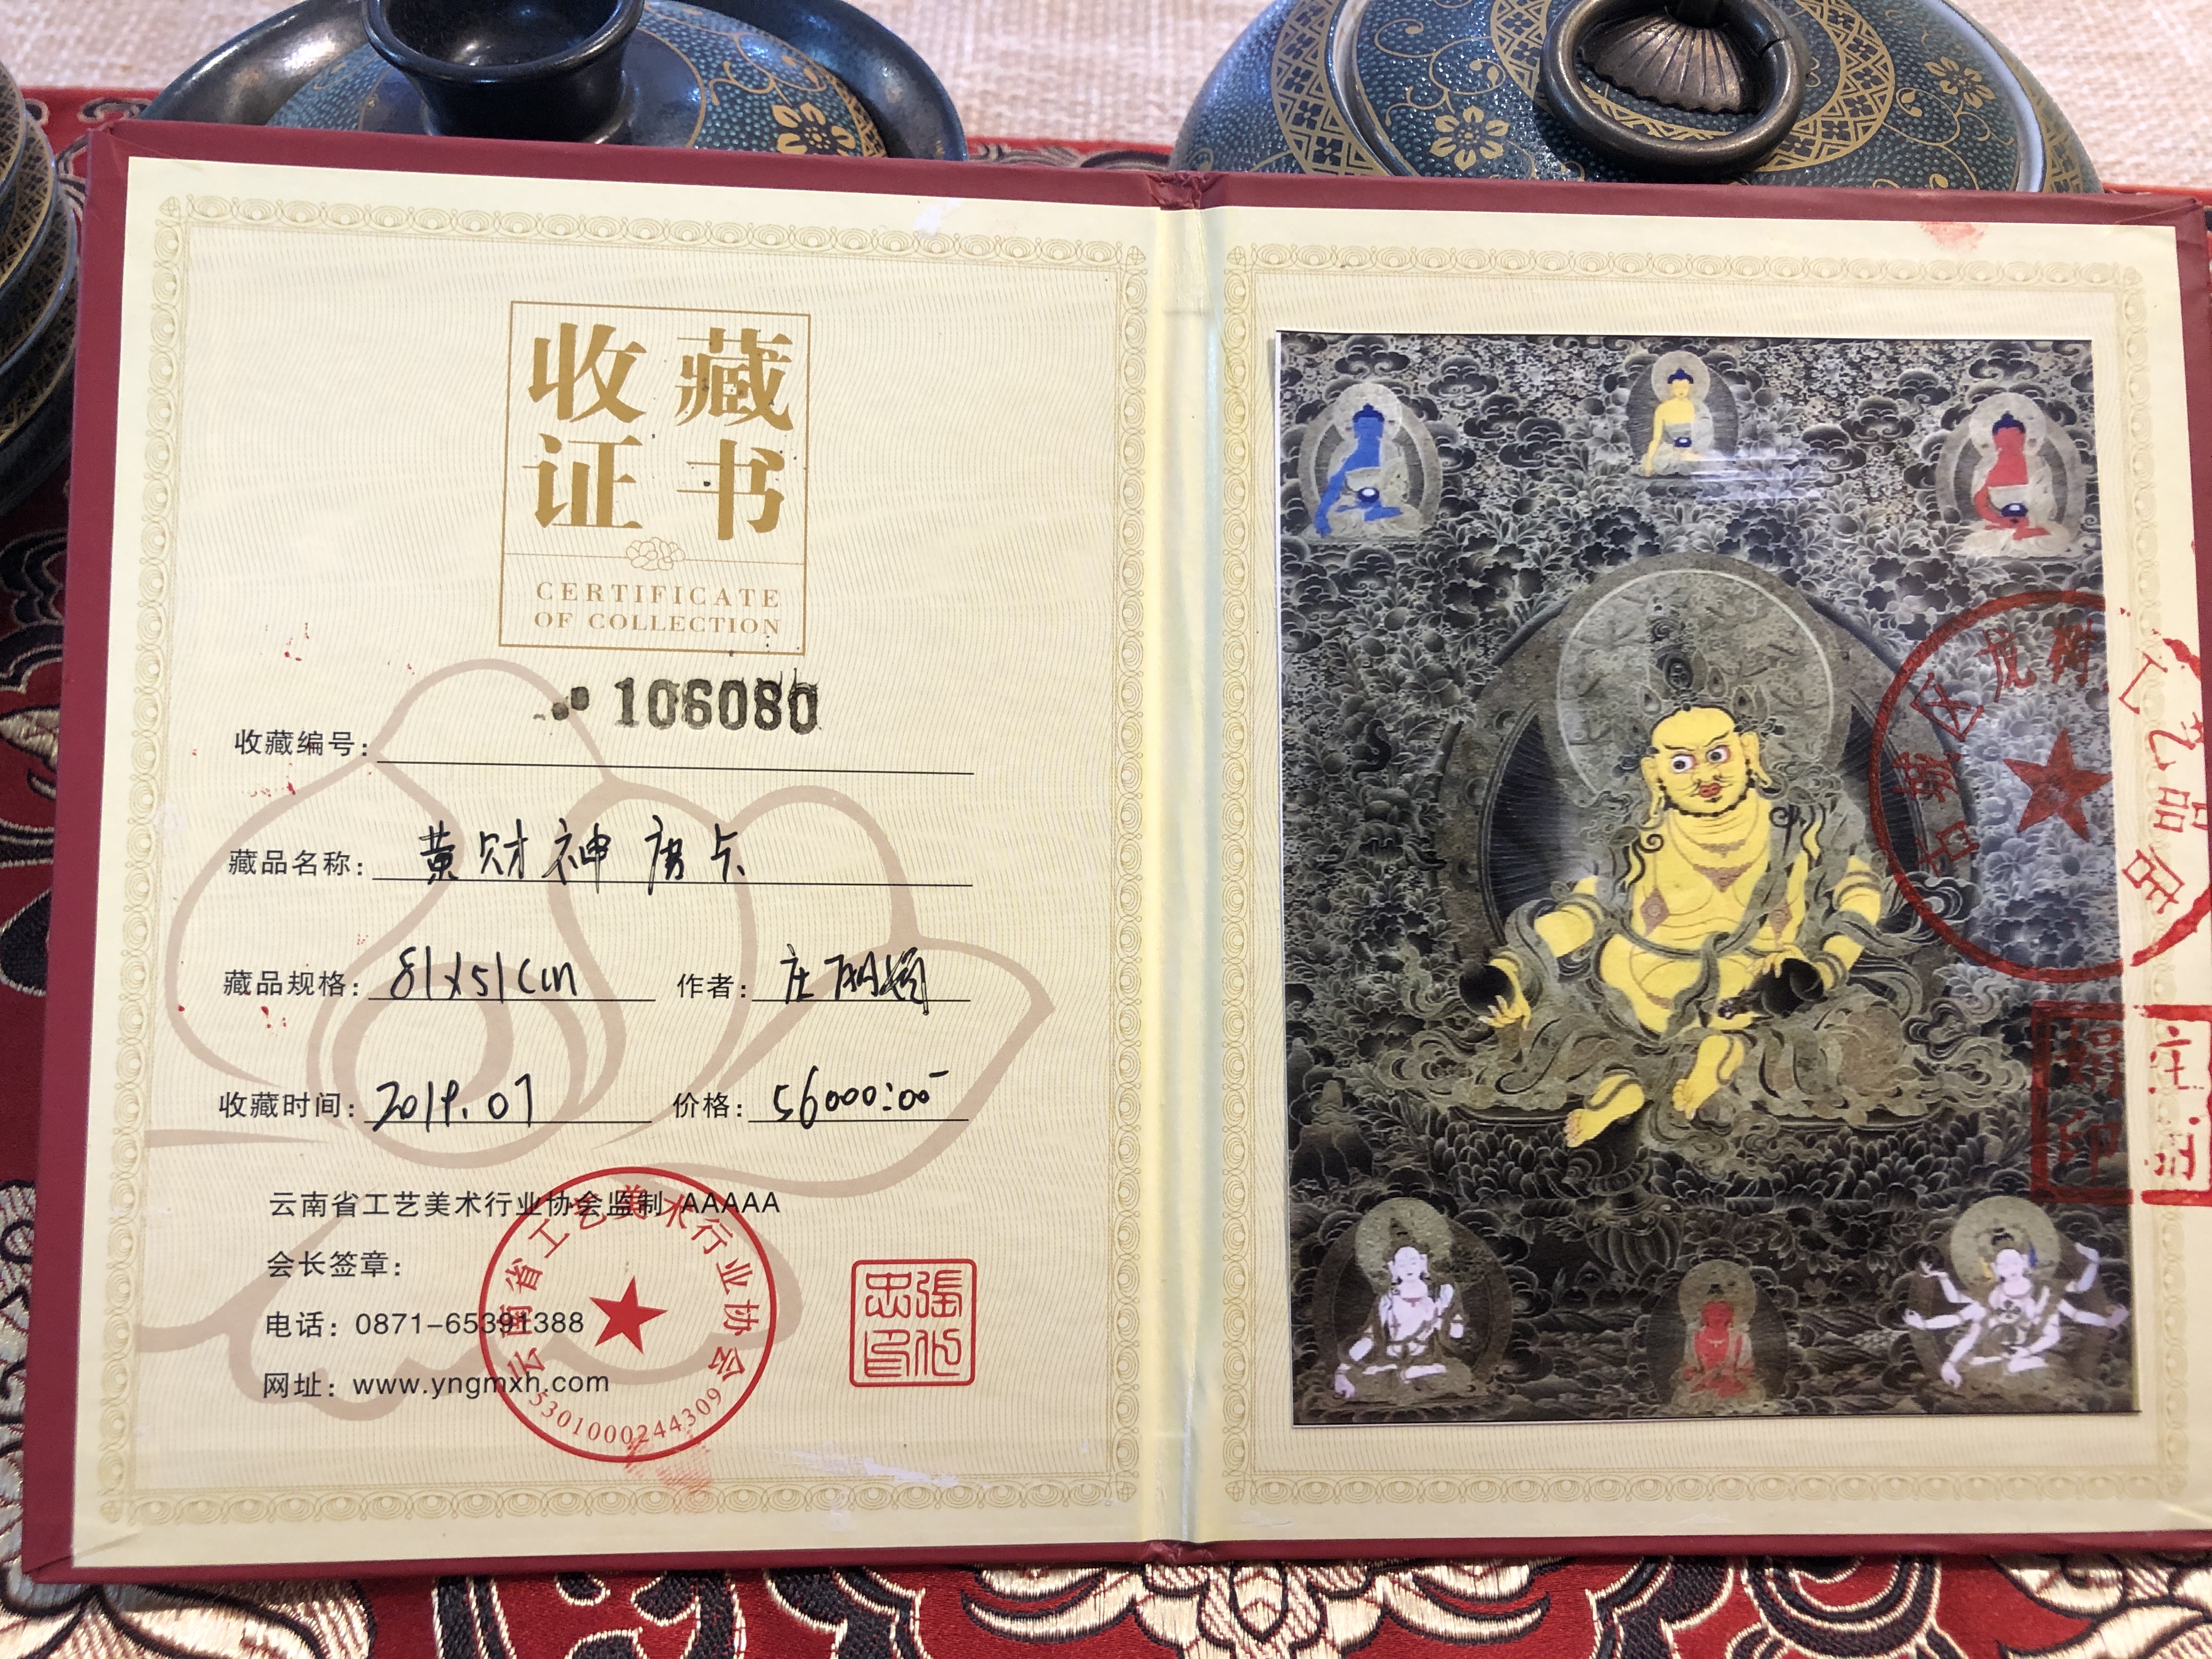 收藏
证书
CERTIFICATE
OF COLLECTION
收藏编号: 106080
藏品名称: 黄财神唐卡
藏品规格: 81x51cm 作者: 庄
收藏时间: 2019.07 价格: 56000:00
云南省工艺美术行业协会监制 AAAAA
会长签章:
电话: 0871-65391388
网址: www.yngmxh.com
云南省工艺美术行业协会
5301000244309
古城区虎
工艺品店
庄
印